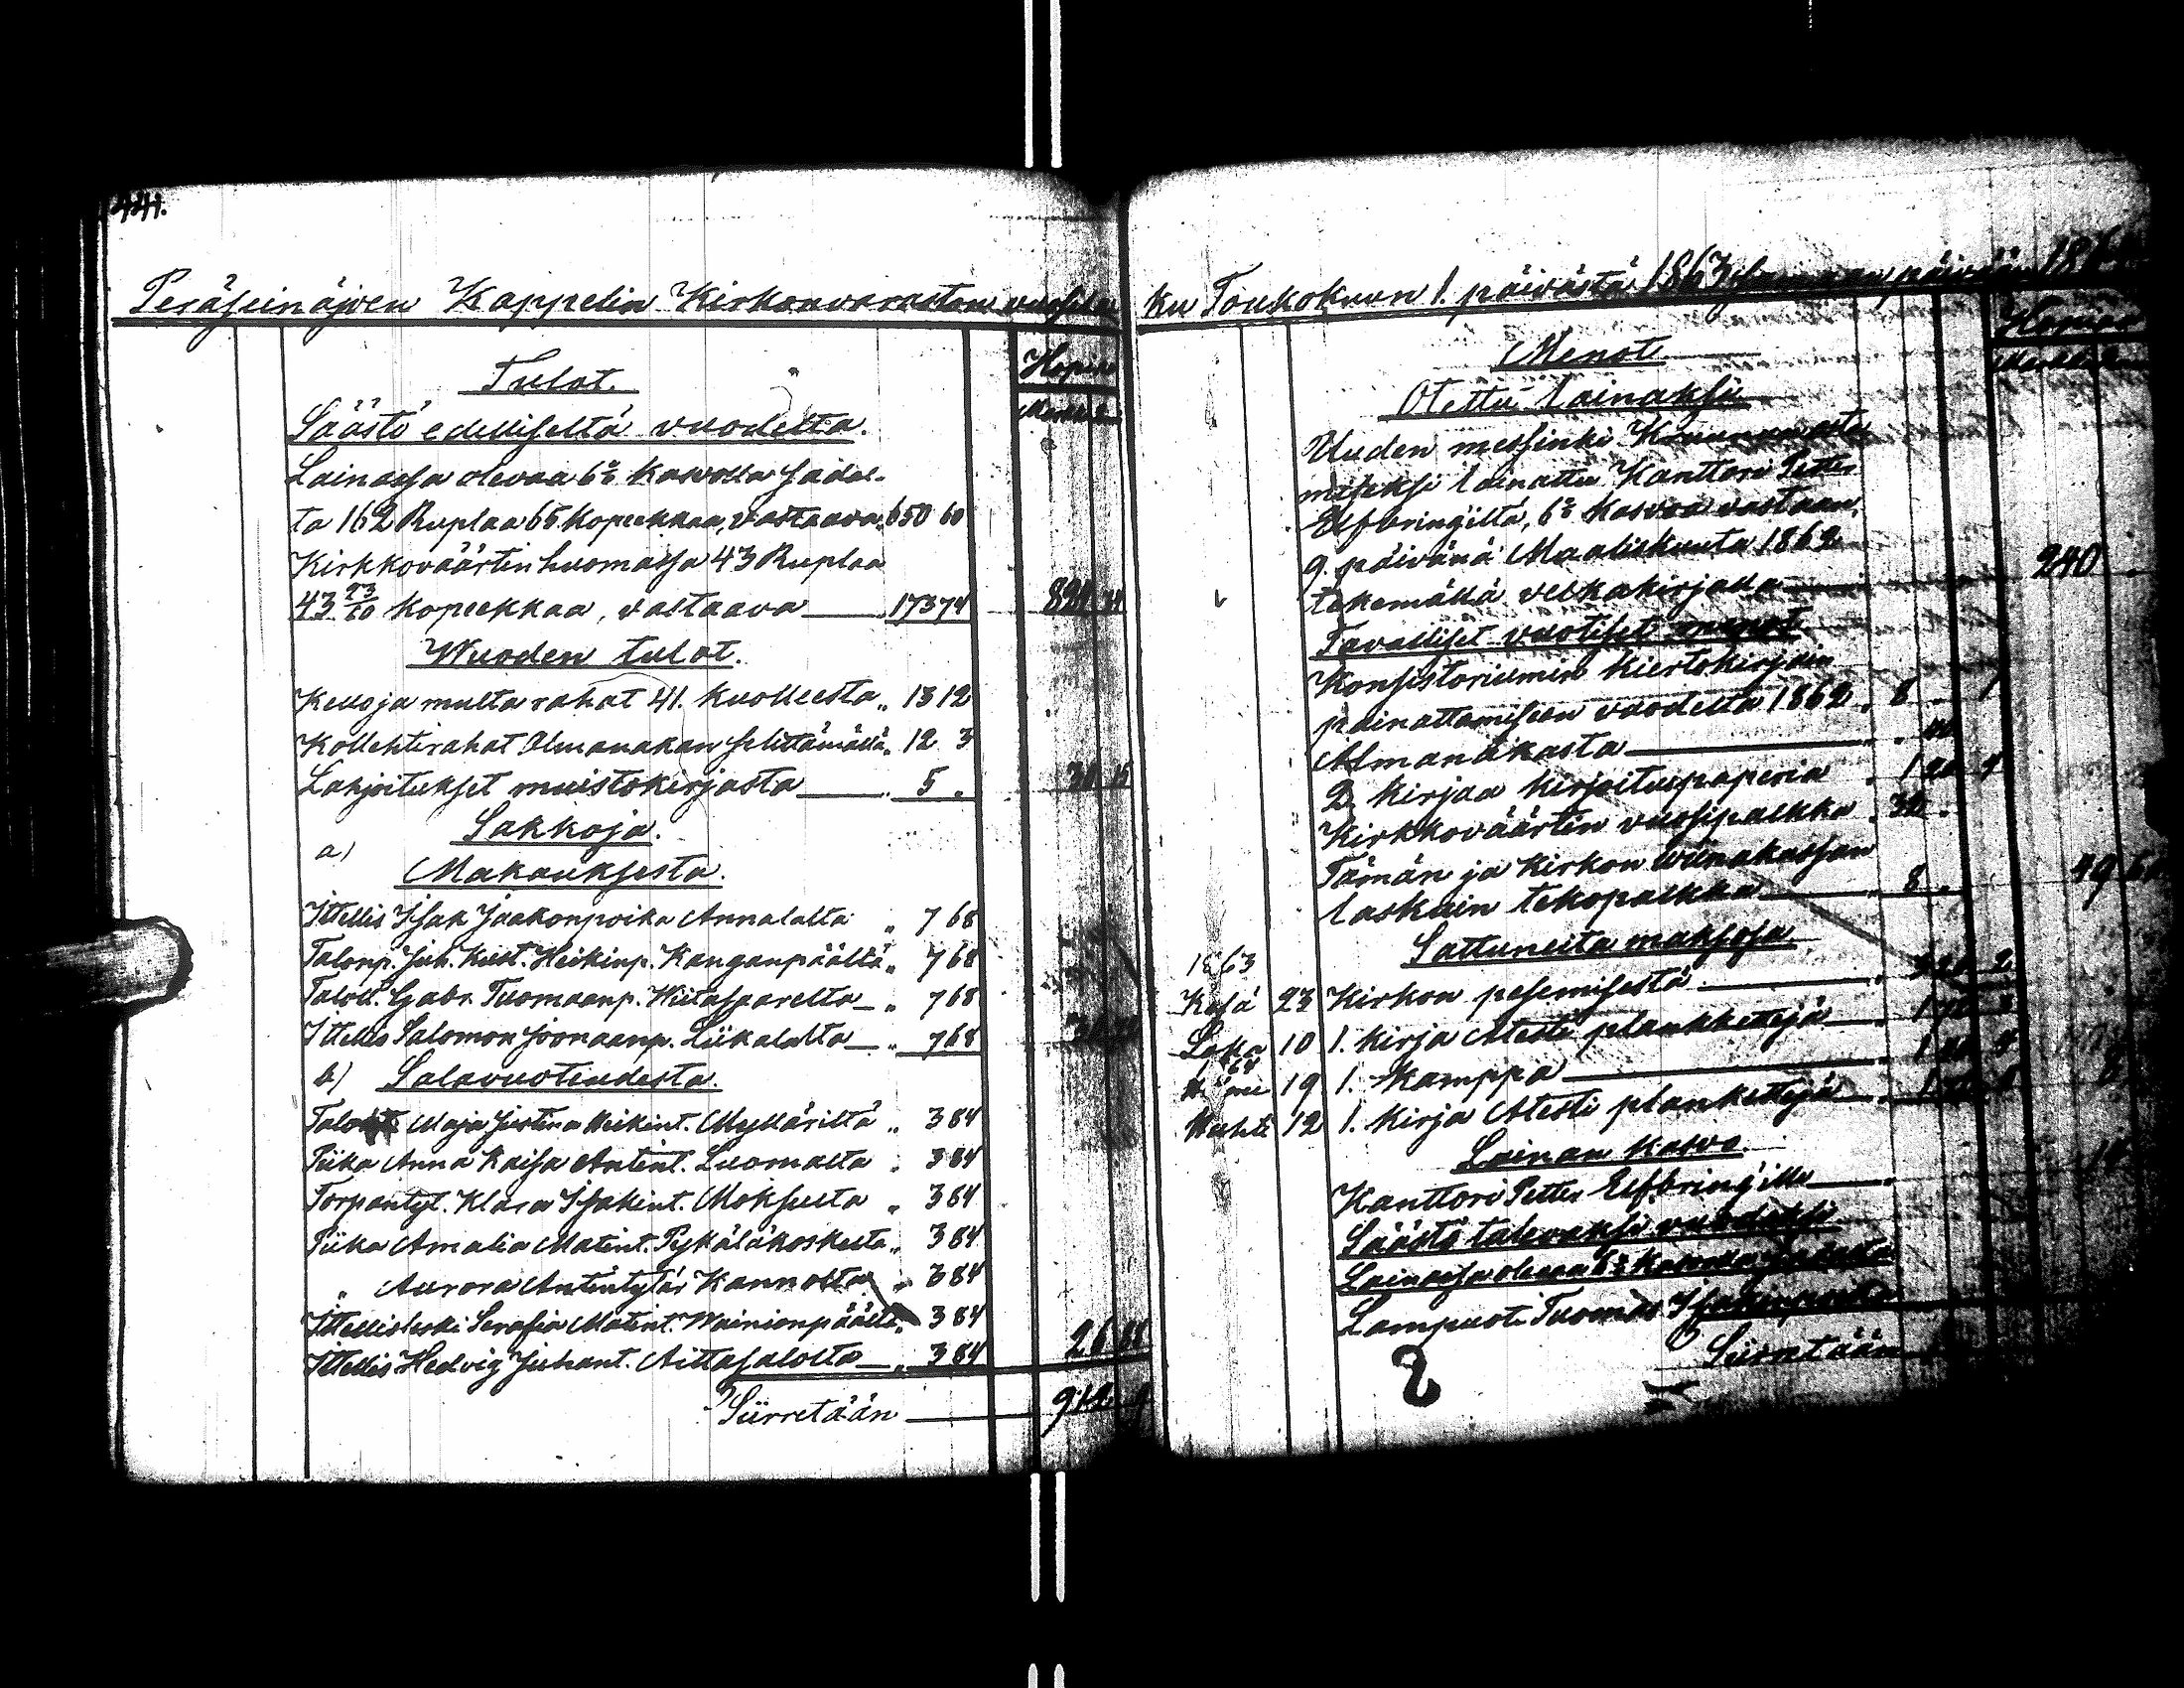 441.
Peräseinäjoen Kappelin Kirkonvaraston vuosilu
Tulot.
Hopea
Säästö edelliseltä vuodelta.
Lainassa olevaa 6% kasvolla sadal-
ta 162 Ruplaa 65 Kopeekkaa, vastaava „ 650 60
Kirkkoväärtin huomassa 43 Ruplaa
43 23/60 kopeekkaa, vastaava — 173 74 824 34
Wuoden tulot.
Kello ja multa rahat 41. kuolleesta „ 13 12
Kollehtirahat Almanakan selittämällä „ 12 3
Lahjoitukset muistokirjasta — „ 5 . 30 15
Sakkoja.
a)
Makauksesta.
Ittellis Isak Jaakonpoika Annalalta „ 7 68
Talonp. Juh. Kust. Heikinp. Kanganpäältä „ 7 68
Taloll. Gabr. Tuomaanp. Wiitasaarelta — „ 7 68
Ittellis Salomon Joonaanp. Liikalalta — „ 7 68
b) Salavuoteudesta.
Maja Justina Heikint. Mylläriltä „ 3 84
Piika Anna Kaisa Antint. Luomalta „ 3 84
Torpantyt. Klara Isakint. Moksulta „ 3 84
Piika Amalia Matint. Pykäläkoskelta „ 3 84
„ Aurora Antintytär Kannolta „ 3 84
Ittellisleski Serafia Matint. Wainionpäältä „ 3 84
Ittellis Hedvig Juhant. Aittasalolta — „ 3 84 26 88
Siirretään — 912 9
ku Toukokuun 1. päivästä 1863 samaan päivään
Menot
Otettu lainaksi
Uuden messinki Kruunun osta
miseksi lainattu Kanttori Petter
Elfbringiltä, 6% kasvoa vastaan,
9. päivänä Maaliskuuta 1862
tekemällä velkakirjalla — 240
Tavalliset vuotiset menot
Konsistoriumin kiertokirjain
painattamiseen vuodelta 1862 „ 8 1
Almanakasta —
2. kirjaa kirjoituspaperia 4
Kirkkoväärtin vuosipalkka 32 .
Tämän ja kirkon viinakassan
laskuin tekopalkka — „ 8 . 49
Sattuneita maksoja.
1863
Kesä 23 Kirkon pesemisestä — 2
10 1. kirja Atesti plankkettejä —
64
19 1. Kamppa — 4
Huhti 12 1. kirja Atesti plankettejä —
Lainan kasvo.
Kanttori Petter Elfbringille —
Säästö tulevaksi vuodeksi
Lainassa olevaa 6% kasvolla sadalta
Lampuoti Tuomas Isakinpoika
Siirretään
8